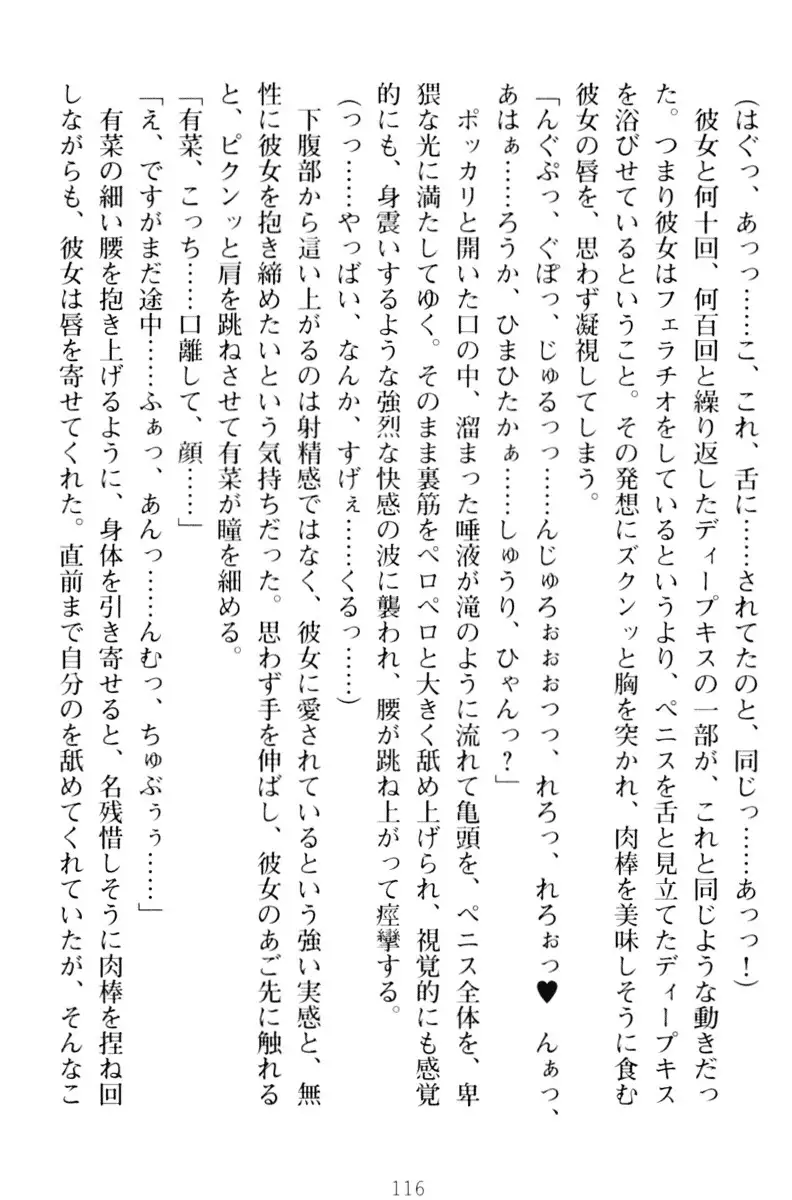 (はぐっ、あっっ……こ、これ、舌に……されてたのと、同じっ……あっっ！)
　彼女と何十回、何百回と繰り返したディープキスの一部が、これと同じような動きだっ
た。つまり彼女はフェラチオをしているというより、ペニスを舌と見立てたディープキス
を浴びせているということ。その発想にズクンッと胸を突かれ、肉棒を美味しそうに食む
彼女の唇を、思わず凝視してしまう。
「んぐぷっ、ぐぽっ、じゅるっっ……んじゅろぉぉぉっっ、れろっ、れろぉっ♥　んぁっ、
あはぁ……ろうか、ひまひたかぁ……しゅうり、ひゃんっ？」
　ポッカリと開いた口の中、溜まった唾液が滝のように流れて亀頭を、ペニス全体を、卑
猥な光に満たしてゆく。そのまま裏筋をペロペロと大きく舐め上げられ、視覚的にも感覚
的にも、身震いするような強烈な快感の波に襲われ、腰が跳ね上がって痙攣する。
(っっ……やっばい、なんか、すげぇ……くるっ……)
　下腹部から這い上がるのは射精感ではなく、彼女に愛されているという強い実感と、無
性に彼女を抱き締めたいという気持ちだった。思わず手を伸ばし、彼女のあご先に触れる
と、ピクンッと肩を跳ねさせて有菜が瞳を細める。
「有菜、こっち……口離して、顔……」
「え、ですがまだ途中……ふぁっ、あんっ……んむっ、ちゅぷぅぅ……」
　有菜の細い腰を抱き上げるように、身体を引き寄せると、名残惜しそうに肉棒を捏ね回
しながらも、彼女は唇を寄せてくれた。直前まで自分のを舐めてくれていたが、そんなこ
116